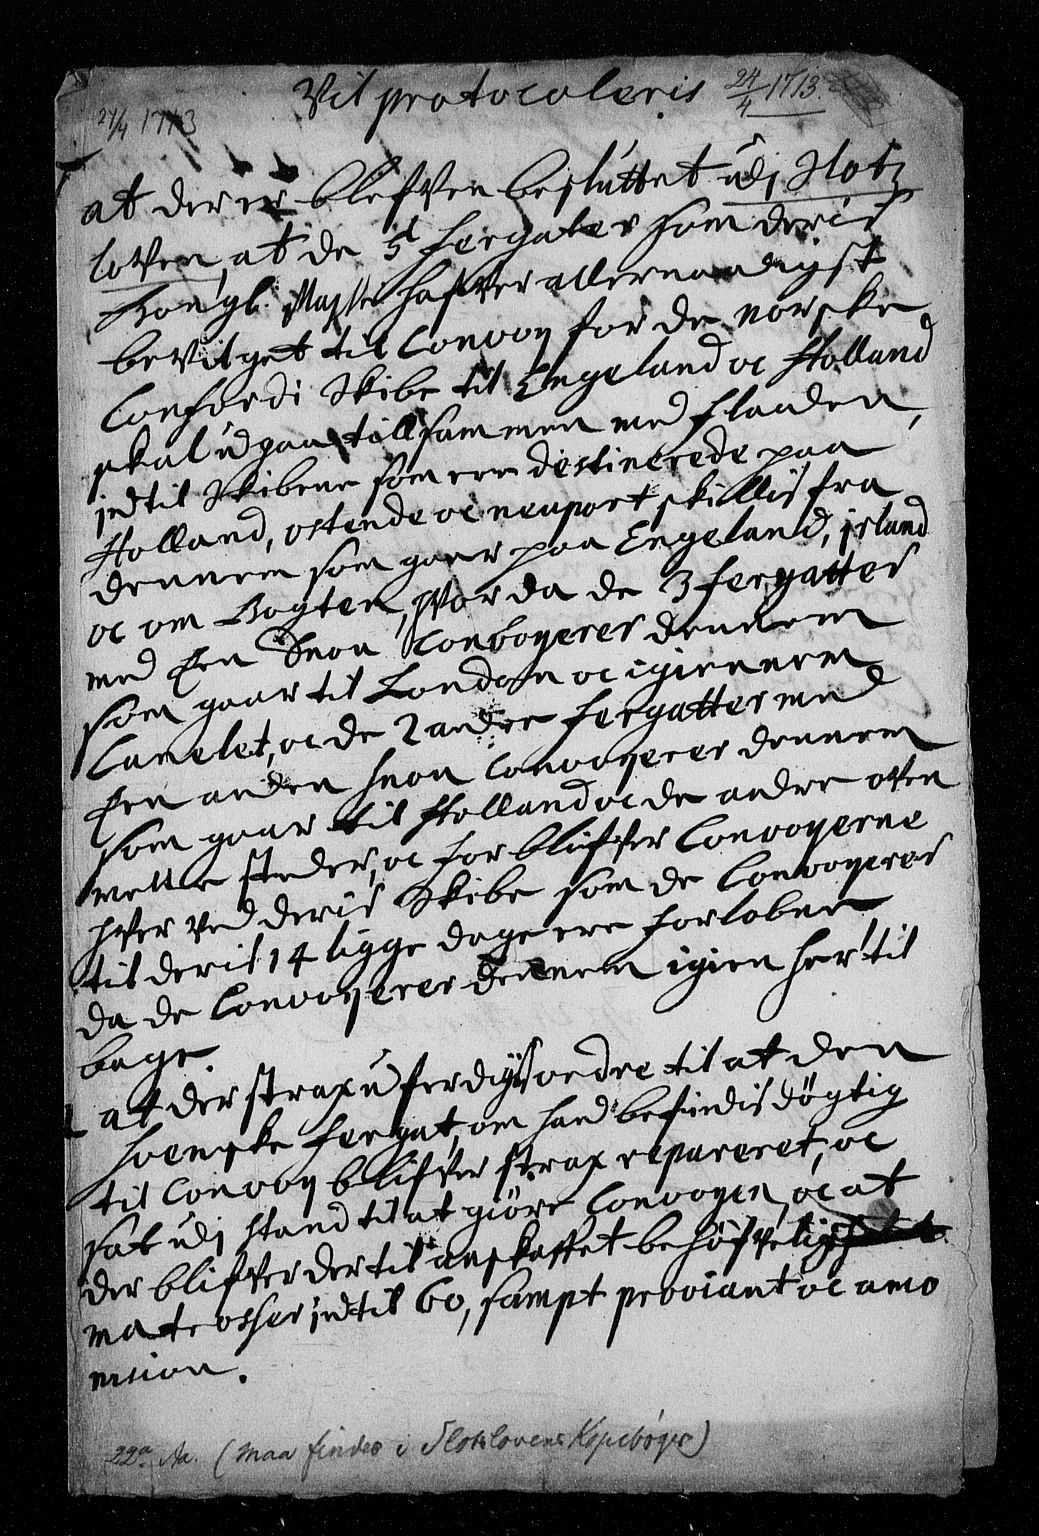 Vil protocoleris 24/4 1713
24/4 1713
at der er blefven besluttet udj Slotz
loven, at de 5 fergater som deris
Kongl. Maytz hafver allernaadigst
bevilget til Convoy for de norske
Confordi Skibe til Engeland oc Holland
skal udgaa tillsammen med flaaden,
indtil Skibene som ere destinerede paa
Holland, ostende oc neuport skillis fra
dennem som gaar paa Engeland, jsland
oc om Bogten, hvor da de 3 fergatter
med Een Snou Convoyerer dennem
som gaar til London oc igiennem
Canelet, oc de 2 andre fergatter med
Een anden Snou Convoyerer dennem
som gaar til Holland oc de andre oven
melte steder, oc forblifver Convoyerne
hver ved deris Skibe som de Convoyerer
til deris 14 ligge dage ere forlobne,
da de Convoyerer dennem igien her til
bage.
at der strax uferdigis ordre til at den
Svenske fergat, om hand befindis døgtig
til Convoy blifver strax repareret, oc
sat udj stand til at giöre Convoyen, oc at
der blifver dertil anskaffet behöfvelig
matrosser indtil 60, sampt proviant oc amo
nision.
22a Aa. (maa findes i Slotslovens Kopiebøger)